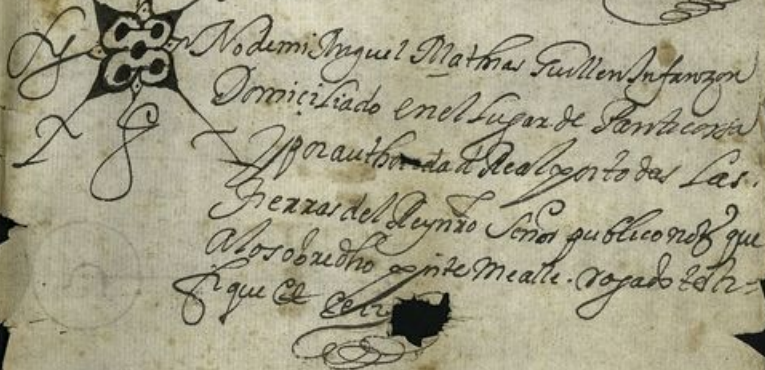 No de mi Miguel Mathias Guillen Infanzon
Domiçiliado en el Lugar de Panticossa
Y por authoridad Real por todas Las
Tierras del Rey nrõ Señor publico notº que
A lo sobredho pnte me alle. rogado testi-
fique et cerre